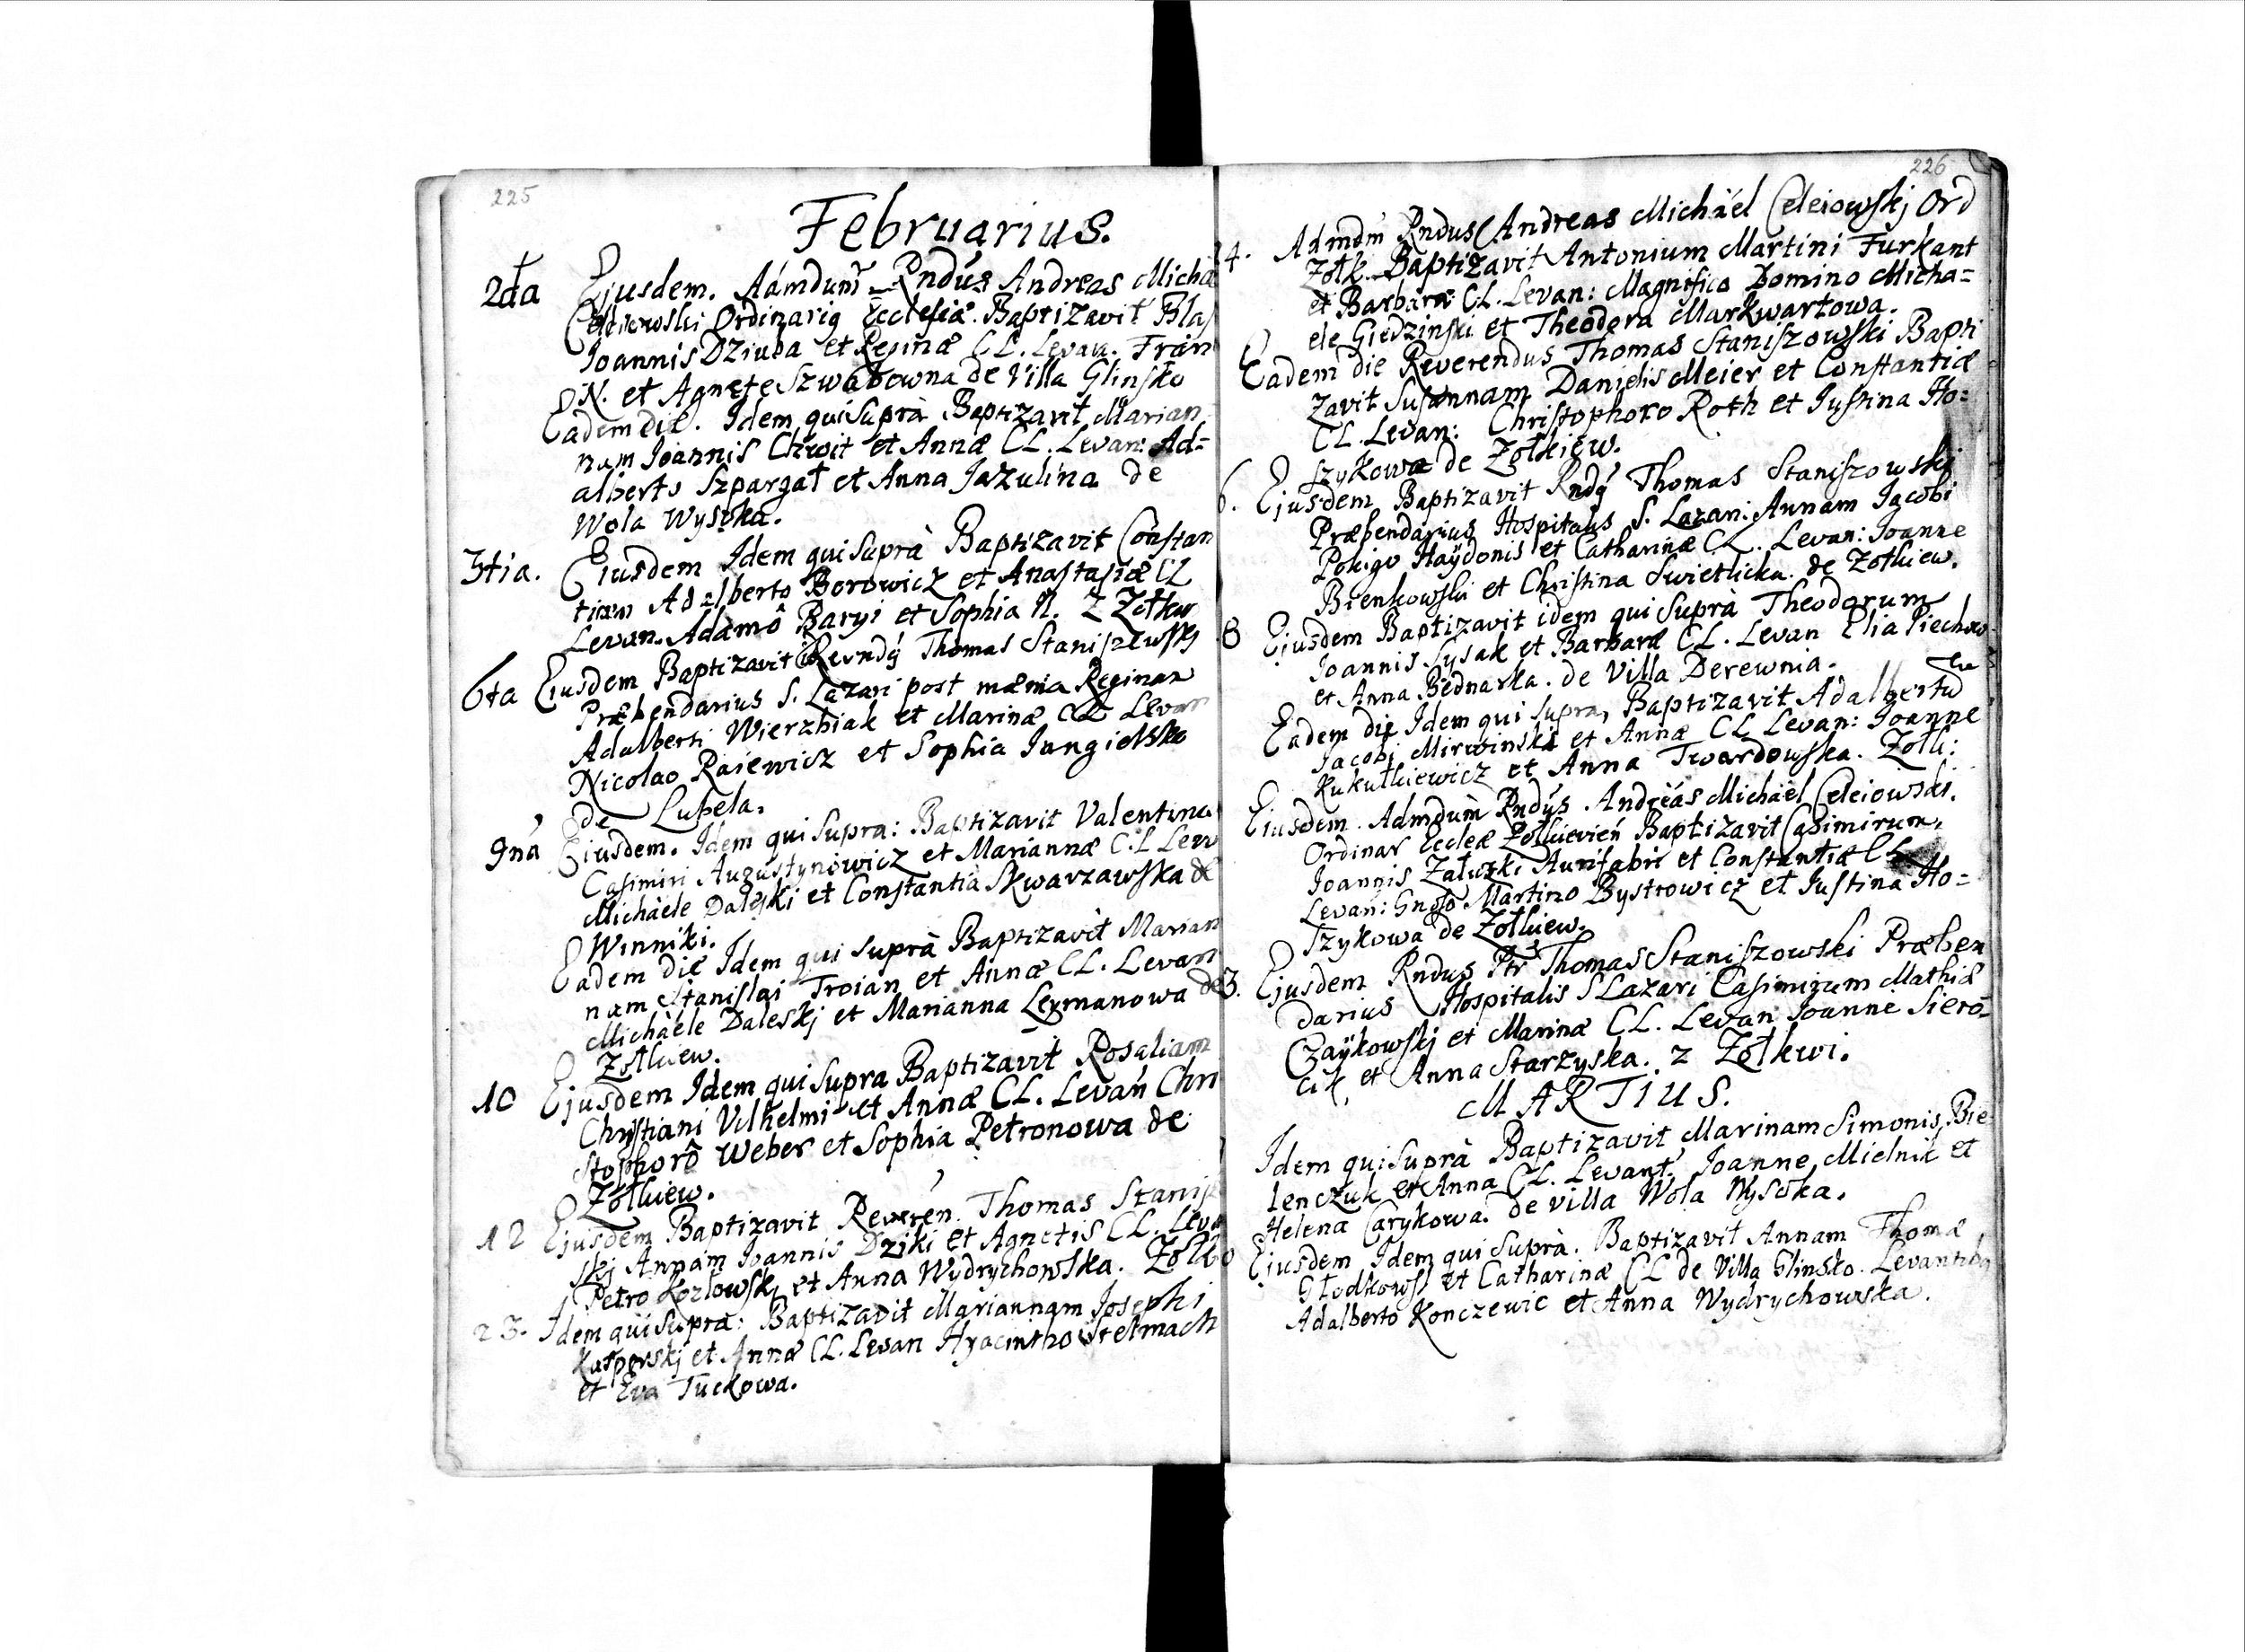 225
Februarius.
2da Ejusdem. Admdum Rndus Andreas Micha
Celeiowski Ordinarig Ecclesiæ. Baptizavit Blas
Joannis Dziuba et Reginæ CL. Levan. Fran
N. et Agnete Szwabowna de Villa Glinsko
Eadem die. Idem qui Suprà Baptizavit Marian
nam Joannis Chwit et Annæ CL. Levan: Ad=
alberto Szpargał et Anna Jazulina de
Wola Wysoka.
3tia. Ejusdem Idem qui Suprà Baptizavit Constan
tiam Adalberto Borowicz et Anastasiæ CL
Levan. Adamô Baryi et Sophia N. Z Zołkw
6ta Ejusdem Baptizavit Revndg Thomas Staniszewski
Præbendarius S. Lazari post mænia Reginam
Adalberti Wierzbiak et Marinæ CL Levan
Nicolao Raiewicz et Sophia Jungielska
de Lubela.
9na Ejusdem. Idem qui Supra: Baptizavit Valentinu
Casimiri Augustynowicz et Mariannæ C.L Lev
Michàele Daleski et Constantia Skwarzawska de
Winniki.
Eadem die Idem qui Suprà Baptizavit Marian
nam Stanislai Troian et Annæ CL. Levan
Michàele Daleskj et Marianna Lexmanowa de
Zołkiew.
10 Ejusdem Idem qui Supra Baptizavit Rosaliam
Christiani Vilhelmi et Annæ CL. Levan Chri
stophorô Weber et Sophia Petronowa de
Zołkiew.
12 Ejusdem Baptizavit Reveren. Thomas Stanis
skj Annam Joannis Dziki et Agnetis CL. Leva
Petro Kozłowskj et Anna Wydrychowska. Zolk
23. Idem qui Supra: Baptizavit Mariannam Josephi
Kasperskj et Annæ CL. Levan Hyacintho Stelmach
et Eva Tuckowa.
226
14. Admdm Rndus Andreas Michäel Celeiowskj Ord
Zołk. Baptizavit Antonium Martini Furkant
et Barbaræ CL. Levan: Magnifico Domino Micha=
ele Giedzinski et Theodora Markwartowa.
Eadem die Reverendus Thomas Staniszowski Bapti
zavit Susannam Danielis Meier et Constantiæ
CL. Levan: Christophoro Roth et Justina Ho=
szykowa de Zołkiew.
6. Ejusdem Baptizavit Rndg Thomas Staniszowskj
Præbendarius Hospitalis S. Lazari: Annam Jacobi
Pokigo Haÿdonis et Catharinæ CL. Levan: Joanne
Bienkowski et Christina Swietlicka. de Zołkiew.
8 Ejusdem Baptizavit idem qui Suprà Theodorum
Joannis Sysak et Barbaræ CL. Levan Elia Piecho
et Anna Bednarka. de Villa Derewnia.
Eadem die Idem qui Supra, Baptizavit Adalbertū
Jacobi Mirwinski et Annæ CL Levan: Joanne
Kukułkiewicz et Anna Twardowska. Zołk:
Ejusdem. Admdum Rndus. Andreas Michàël Celeiowski.
Ordinar Eccleæ Zołkievień Baptizavit Casimirum,
Joannis Załuzki Aurifabri et Constantiæ CL
Levan: Gnoso Martino Bystrowicz et Justina Ho=
szykowa de Zołkiew.
3. Ejusdem Rndus Ptr Thomas Staniszowski Præben
darius Hospitalis S Lazari Casimirum Mathiæ
Czaÿkowskj et Marinæ CL. Levan Joanne Siero=
cik, et Anna Starzyska. z Zołkwi.
MARTIUS.
Idem qui Suprà Baptizavit Marinam Simonis Bie
lenczuk et Anna CL. Levant. Joanne Mielnik et
Helena Carykowa. de villa Wola Wysoka.
Ejusdem Idem qui Suprà. Baptizavit Annam Thomæ
Głodkows et Catharinæ CL de Villa Glinsko. Levantib
Adalberto Konczewic et Anna Wydrychowska.